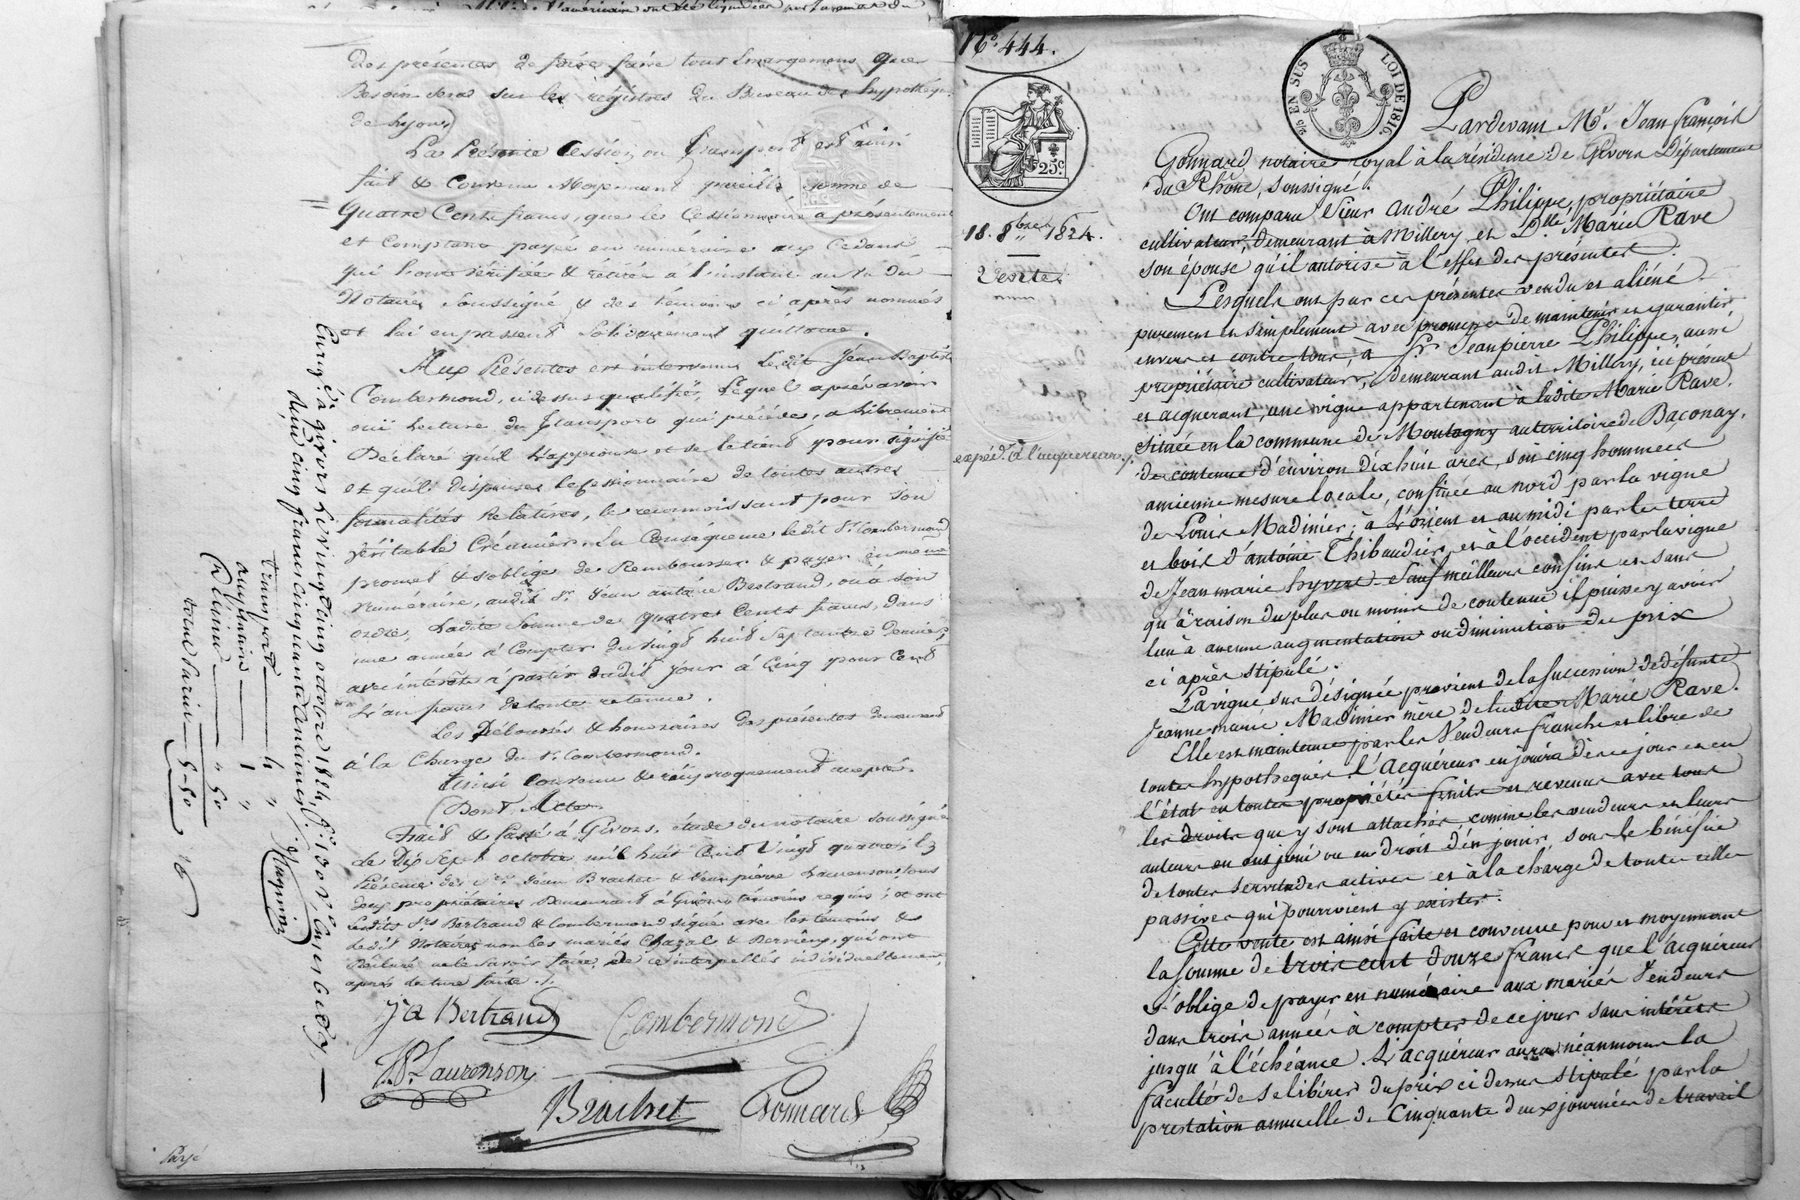 des présentes de faire faire tous émargemens que
Besoin sera sur les régistres du Bureau des hypothèques
de Lyon
La Présente Cession ou Transport est ainsi
fait & convenu Moyennant pareille somme de
Quatre Cents francs, que le Cessionnaire a présentement
et Comptant payée en numéraire aux Cédans
qui l'ont vérifiée & rétirée à l'instant au vu du
Notaire soussigné & des témoins ci après nommés
et lui en passent solidairement quittance.
Aux Présentes est intervenu ledit Jean Baptiste
Combermond, ci dessus qualifié, lequel après avoir
ouï lecture du Transport qui précède, a librement
Déclaré qu'il l'approuve et se le tient pour signifié
et qu'il dispense le cessionnaire de toutes autres
formalités Relatives, le reconnoissant pour son
véritable Créancier. En Conséquence ledit Sr. Combermond
promet & s'oblige de Rembourser & payer en même
numéraire, audit Sr. Jean antoine Bertrand, ou à son
ordre, ladite Somme de quatre cents francs, dans
une année à Compter du vingt huit Septembre Dernier
avec intérêts à partir dudit jour à Cinq pour Cent
L'an francs de toute retenue.
Les Déboursés & honoraires des présentes demeurent
à la Charge du Sr. Combermond.
Ainsi Convenu & réciproquement accepté.
Dont Acte
Fait & Passé à Givors, étude du notaire soussigné
Le Dix Sept octobre, mil huit Cent Vingt quatre, En
Présence des Srs. Jean Brachet & Jean pierre Laurenson, tous
deux propriétaires, Demeurant à Givors témoins requis; et ont
lesdits Srs Bertrand & Combermond signé avec les témoins &
ledit Notaire non les mariés Chazal & Berrière, qui ont
déclaré ne le savoir faire, de ce interpellés individuellement,
après lecture faite.
Ja Bertrand
Combermond
JP. Laurenson
Brachet
Gonnard
Enreg. à givors le vingt cinq octobre 1824, fo. 130
reçu cinq francs cinquante centimes
Transport 4 "
" 1 "
Décime " 50
5-50
N.o 444.
25 EN SUS
LOI DE 1816.
25c.
18. 8bre 1824.
Vente
expéd. à l'acquereur
Pardevant Mr. Jean françois
Gonnard notaire royal à la résidence de Givors Département
du Rhône, soussigné.
Ont comparu Sieur André Philippe, propriétaire
cultivateur, demeurant à Millery, et Dlle Marie Rave
son épouse qu'il autorise à l'effet des présentes.
Lesquels ont par ces présentes vendu et aliéné
purement et simplement avec promesse de maintenir et garantir
envers et contre tous, à Sr. Jean pierre Philippe, aussi
propriétaire cultivateur, demeurant audit Millery, ici présent
et acquérant, une vigne appartenant à ladite Marie Rave,
située en la commune de Montagny au territoire de Baconay,
de contenue d'environ dix huit ares, soit cinq hommées
ancienne mesure locale, confinée au nord par la vigne
de Louis Madinier; à l'orient et au midi par les terre
et bois d'antoine Thibaudier, et à l'occident par la vigne
de Jean marie hyvert. Sauf meilleurs confins et sans
qu'à raison du plus ou moins de contenue il puisse y avoir
lieu à aucune augmentation ou diminution du prix
ci après stipulé.
La vigne sus désignée provient de la succession de défunte
Jeanne marie Madinier mère de ladite Marie Rave.
Elle est maintenue par les Vendeurs franche et libre de
toutes hypothèques. L'Acquéreur en jouira dès ce jour et en
l'état en toutes propriétés fruits et revenus avec tous
les droits qui y sont attachés, comme les vendeurs et leurs
auteurs en ont joui ou eu droit d'en jouir, sous le bénéfice
de toutes servitudes actives et à la charge de toutes celles
passives qui pourroient y exister.
Cette vente est ainsi faite et convenue pour et moyennant
la somme de trois cent douze francs que l'acquéreur
s'oblige de payer en numéraire aux mariés Vendeurs
dans trois années à compter de ce jour sans intérêts
jusqu'à l'échéance. L'acquéreur aura néanmoins la
faculté de se libérer du prix ci dessus stipulé par la
prestation annuelle de Cinquante deux journées de travail